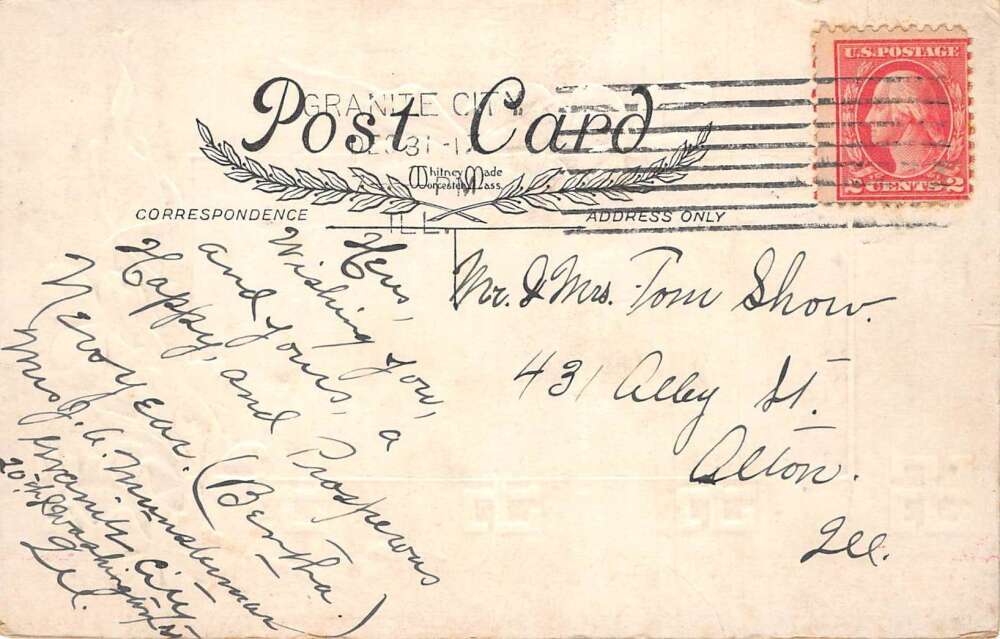 U.S. POSTAGE
CENTS 2
GRANITE CITY.
DEC 31 - 1
ILL.
Post Card
Whitney Made
Worcester, Mass.
CORRESPONDENCE
ADDRESS ONLY
Hers,
Wishing you,
and yours, a
Happy, and Prosperous
New Year. (Bertha.)
Mrs J. A.
Granite City
20th & Washington
Ill.
Mr. & Mrs. Tom Show.
431 Alby St.
Alton.
Ill.